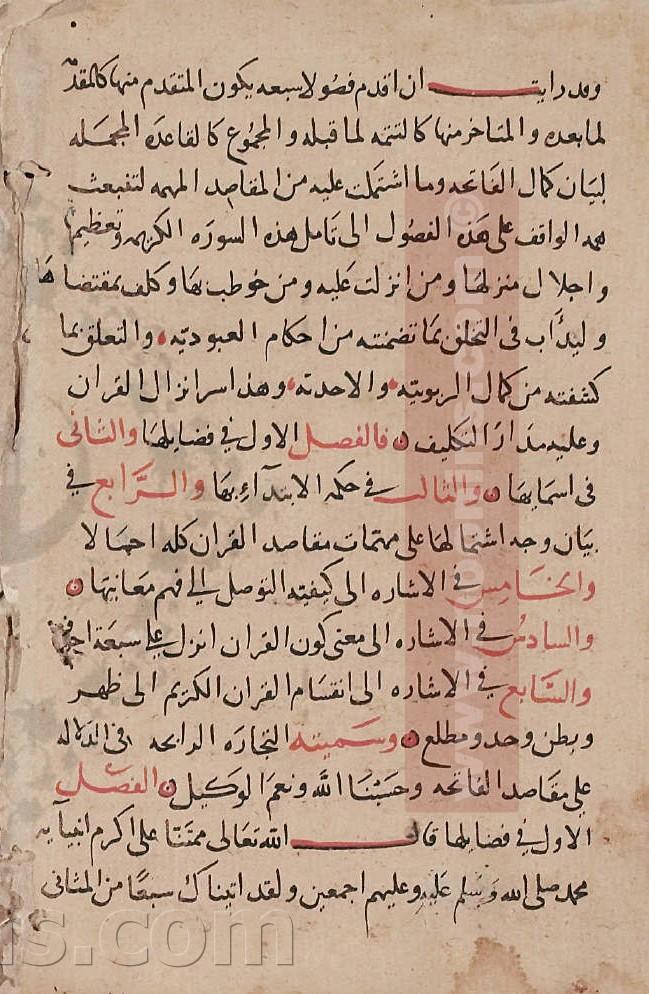 وقد رايت ان اقدم فصولا سبعه يكون المتقدم منها كالمقدمة
لما بعده والمتاخر منها كالتتمه لما قبله والمجموع كالقاعده المجمله
لبيان كمال الفاتحه وما اشتملت عليه من المقاصد المهمه لتنبعث
همه الواقف على هذه الفصول الى تامل هذه السوره الكريمه وتعظيمها
واجلال منزلها ومن انزلت عليه ومن خوطب بها وكلف بمقتضاها
وليدأب فى التخلق بما تضمنته من احكام العبوديه والتعلق بما
كشفته من كمال الربوبيه والاحديه وهذا سر انزال القران
وعليه مدار التكليف فالفصل الاول في فضايلها والثانى
فى اسمايها والثالث في حكمه الابتدآء بها والرابع في
بيان وجه اشتمالها على مهمات مقاصد القران كله اجمالا
والخامس في الاشاره الى كيفيه التوصل الى فهم معانيها
والسادس في الاشاره الى معنى كون القران انزل على سبعة احرف
والسابع في الاشاره الى انقسام القران الكريم الى ظهر
وبطن وحد ومطلع وسميته التجاره الرابحه فى الدلاله
على مقاصد الفاتحه وحسبنا الله ونعم الوكيل الفصل
الاول في فضايلها قال الله تعالى ممتنا على اكرم انبيآيه
محمد صلى الله وسلم عليه وعليهم اجمعين ولقد اتيناك سبعا من المثانى